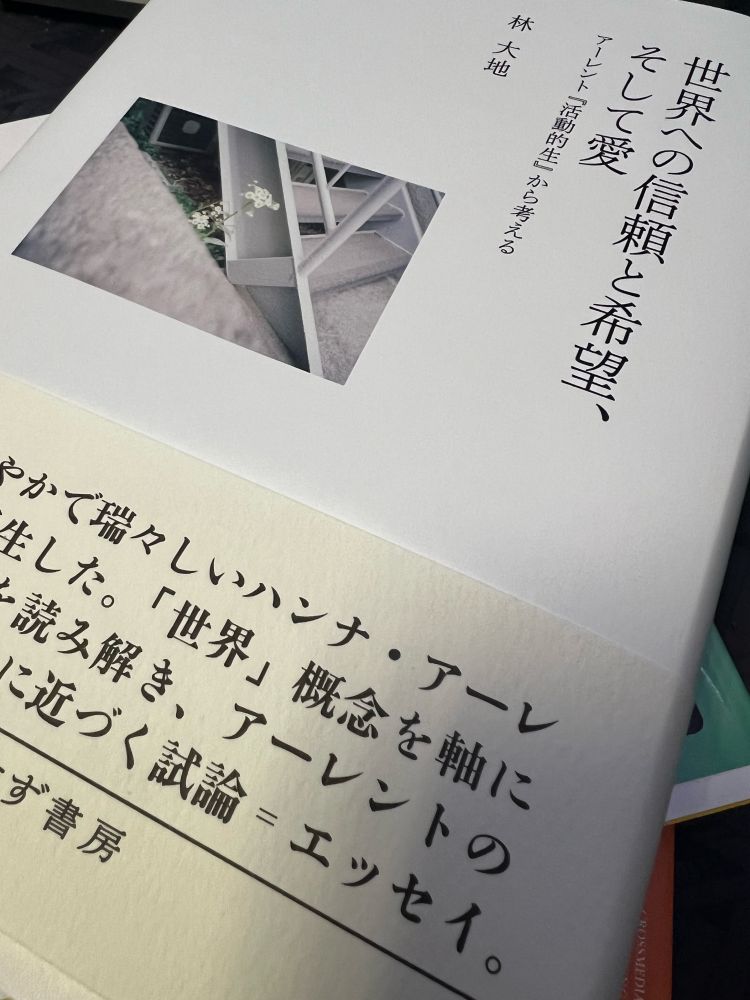 世界への信頼と希望、
そして愛
アーレント『活動的生』から考える
林 大地
やかで瑞々しいハンナ・アーレ
生した。「世界」概念を軸に
を読み解き、アーレントの
に近づく試論=エッセイ。
ず書房
CROSSMEDIA